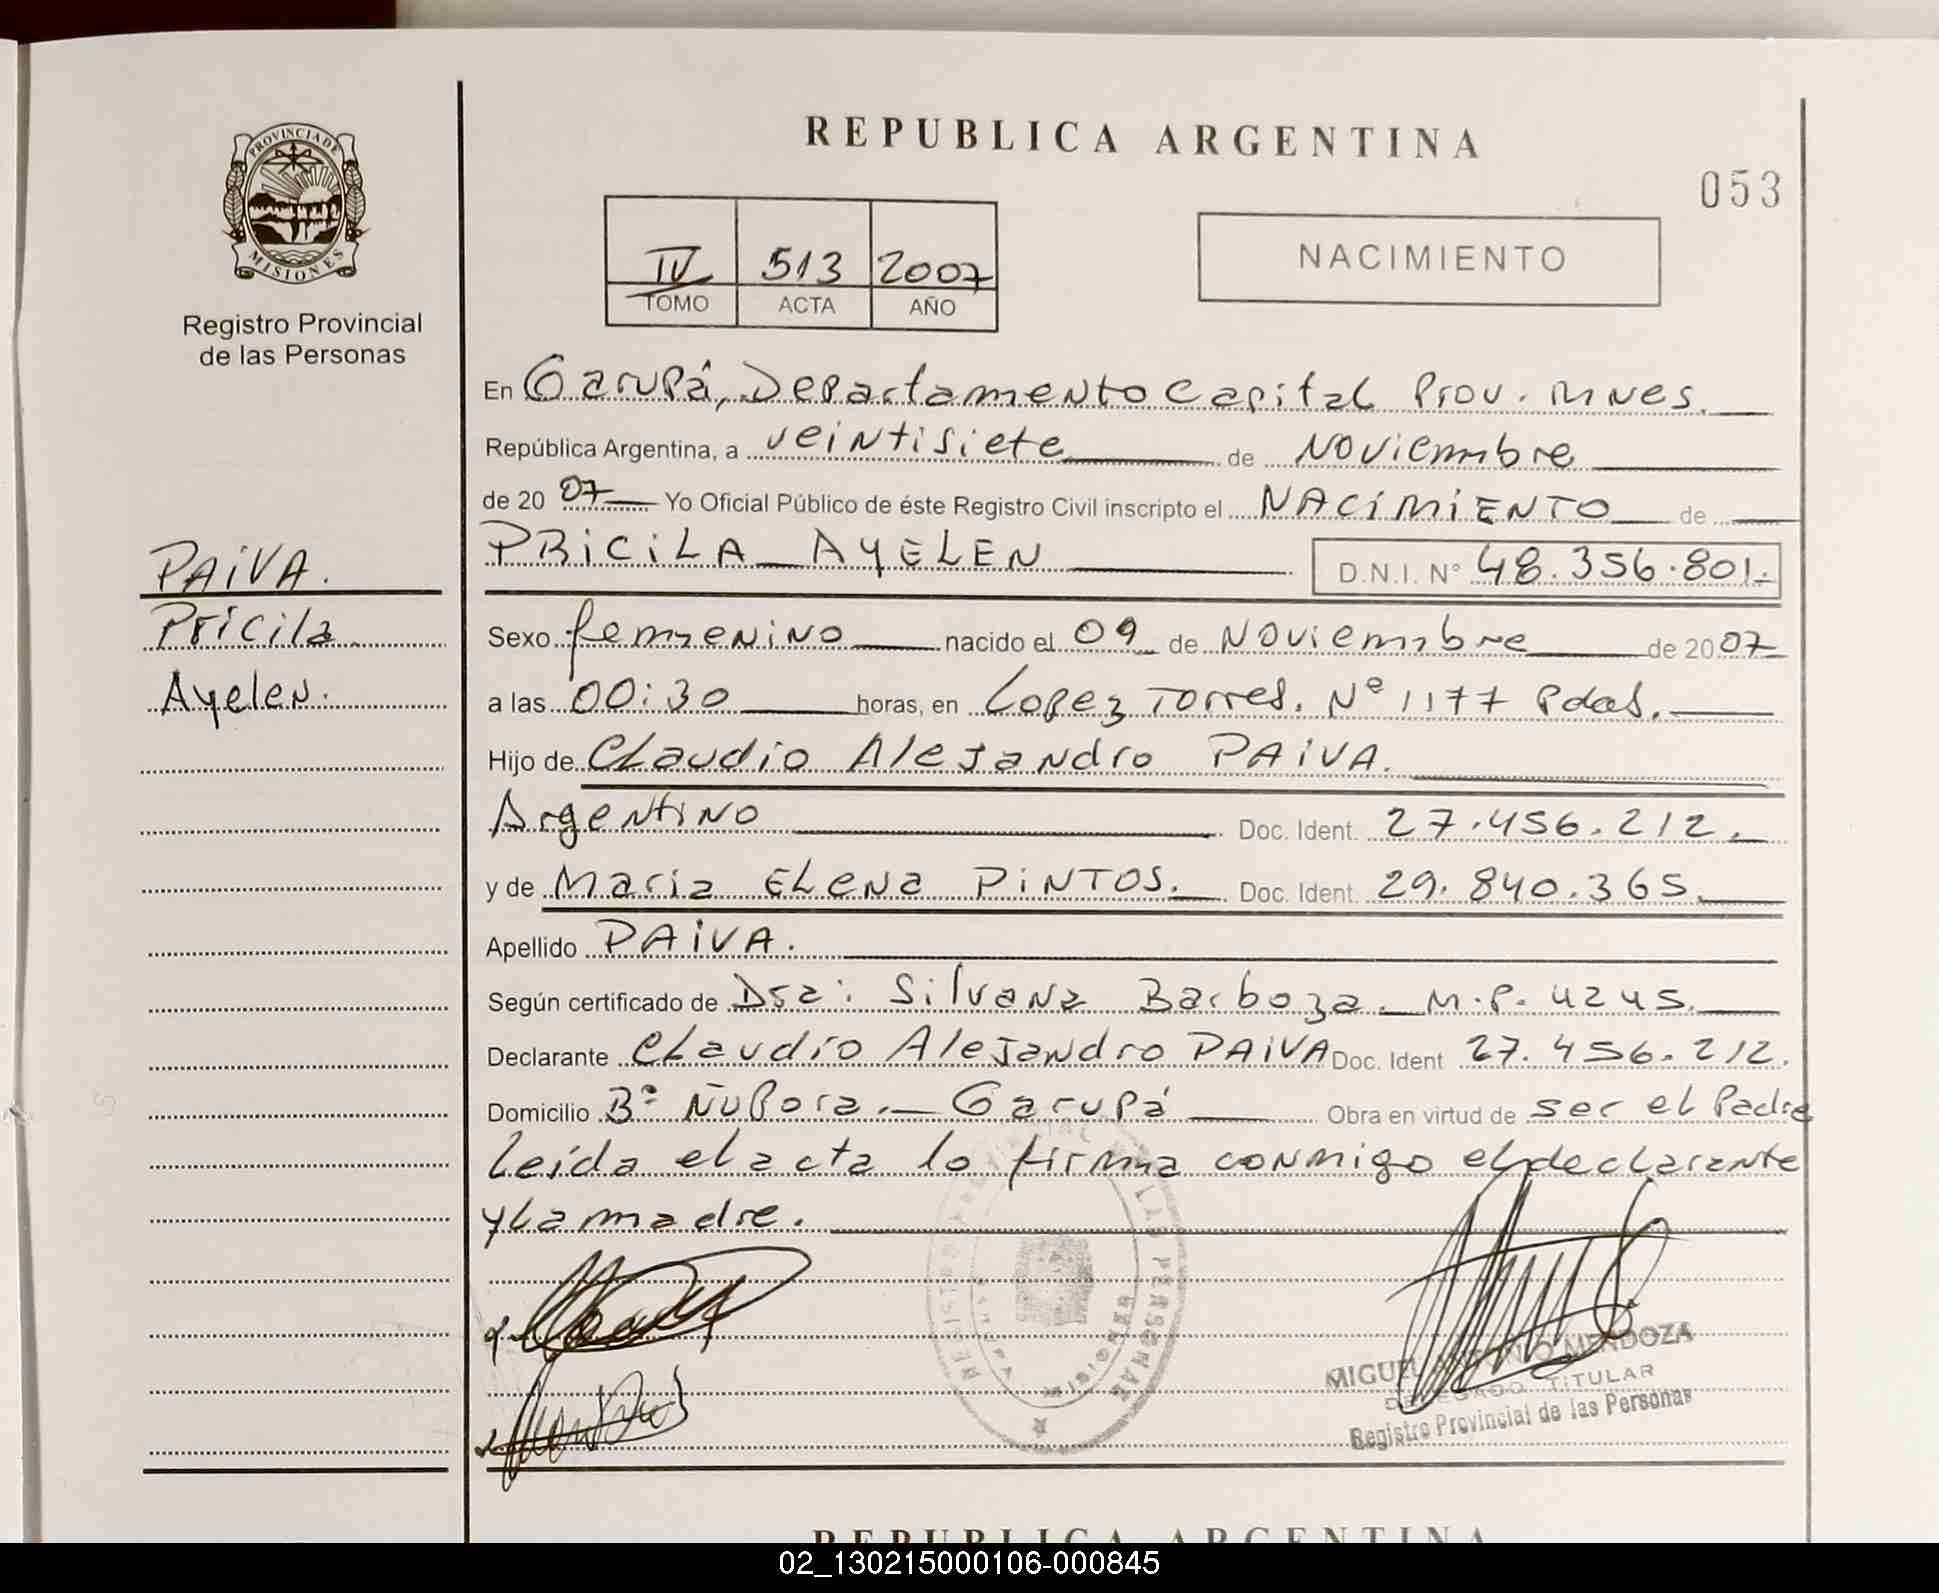 REPUBLICA ARGENTINA
053
PROVINCIA DE
MISIONES
Registro Provincial
de las Personas
IV 513 2007
TOMO ACTA AÑO
NACIMIENTO
En Garupá, Departamento Capital Prov. Mnes.
República Argentina, a veintisiete de Noviembre
de 2007 Yo Oficial Público de éste Registro Civil inscripto el NACIMIENTO de
PRICILA AYELEN D.N.I. N° 48.356.801.
PAIVA.
Pricila
Ayelen.
Sexo femenino nacido el 09 de Noviembre de 2007
a las 00:30 horas, en Lopez Torres. Nº 1177 Pdas.
Hijo de Claudio Alejandro PAIVA.
Argentino Doc. Ident. 27.456.212.
y de Maria Elena PINTOS. Doc. Ident. 29.840.365.
Apellido PAIVA.
Según certificado de Dra: Silvana Barboza. M.P. 4245.
Declarante Claudio Alejandro PAIVA Doc. Ident 27.456.212.
Domicilio Bº Ñu Pora. Garupá Obra en virtud de ser el Padre
Leída el acta lo firma conmigo el declarante
y la madre.
MIGUEL ANTONIO MENDOZA
DELEGADO TITULAR
Registro Provincial de las Personas
REPUBLICA ARGENTINA
02_130215000106-000845